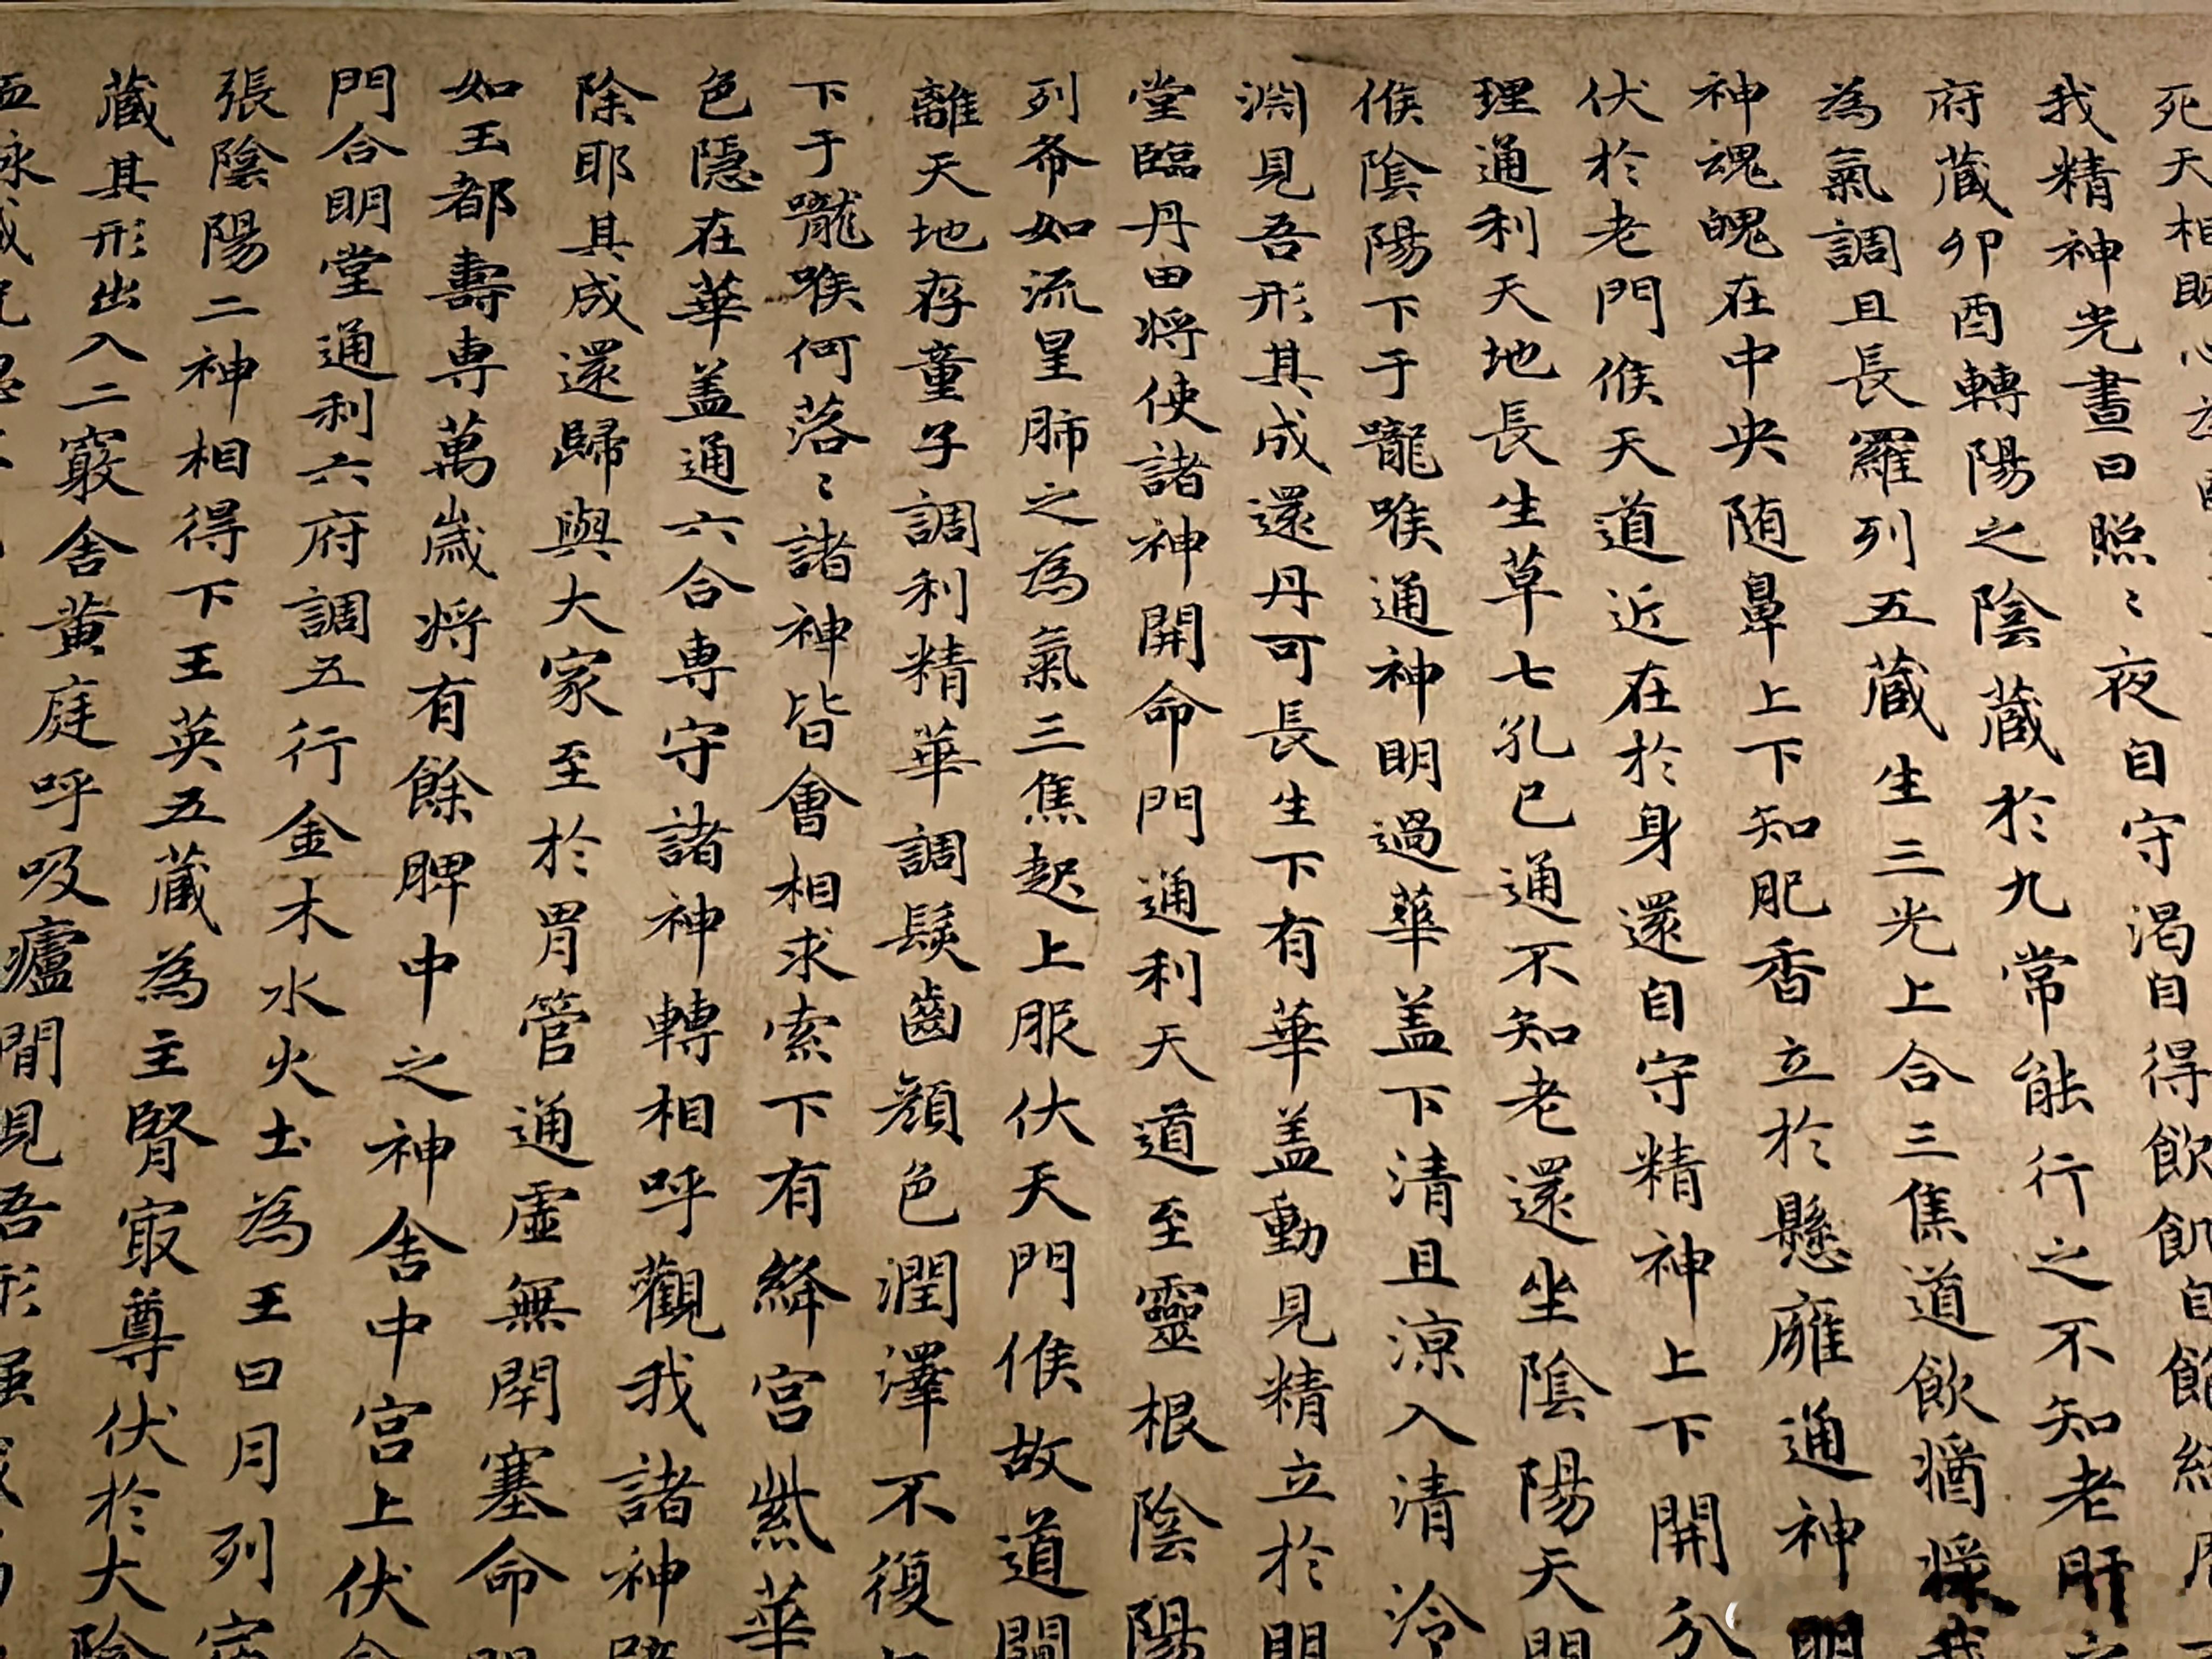 死天相既心
我精神光晝日照〻夜自守渴自得飲飢自飽經
府藏卯酉轉陽之陰藏於九常能行之不知老肝之
為氣調且長羅列五藏生三光上合三焦道飲
神魂魄在中央随鼻上下知肥香立於懸廱通神明
伏於老門候天道近在於身還自守精神上下開分
理通利天地長生草七孔已通不知老還坐陰陽天門
候陰陽下于嚨喉通神明過華盖下清且涼入清泠
淵見吾形其成還丹可長生下有華盖動見精立於明
堂臨丹田将使諸神開命門通利天道至靈根陰陽
列希如流星肺之為氣三焦起上服伏天門候故道闚
離天地存童子調利精華調髮齒顔色潤澤不復
下于嚨喉何落〻諸神皆會相求索下有絳宮紫華
色隱在華盖通六合専守諸神轉相呼觀我諸神辟
除耶其成還歸與大家至於胃管通虛無閉塞命門
如玉都壽専萬歲将有餘脾中之神舍中宮上伏命
門合明堂通利六府調五行金木水火土為王日月列宿
張陰陽二神相得下玉英五藏為主腎冣尊伏於大陰
藏其形出入二竅舍黄庭呼吸廬間見吾形强我
血脉盛